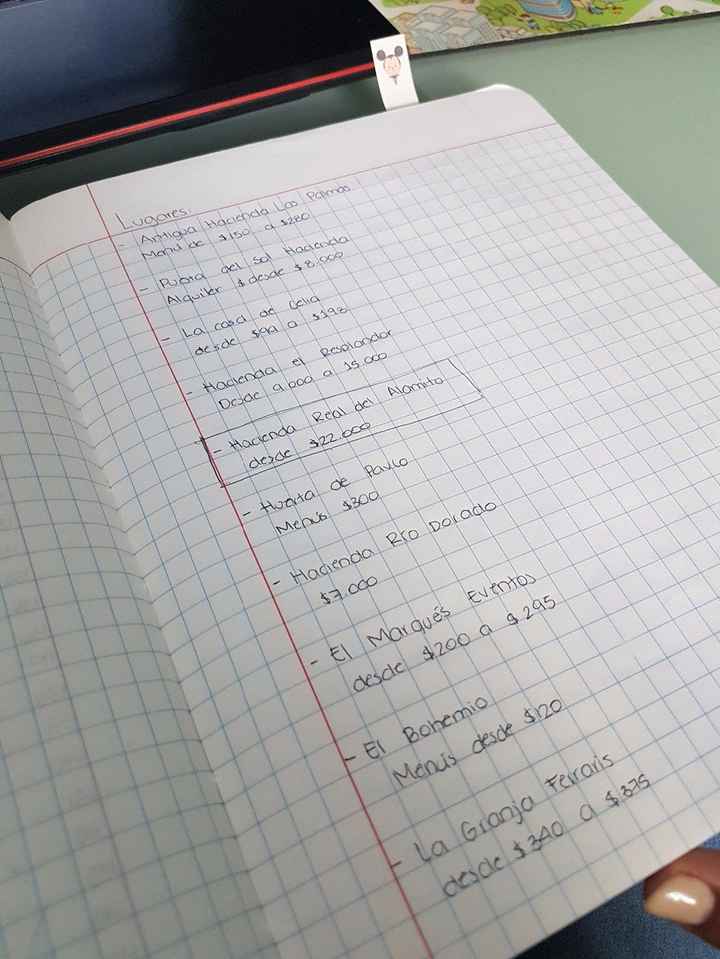 Lugares:
- Antigua Hacienda Las Palmas
Menú de $150 a $280
- Puerta del Sol Hacienda
Alquiler $ desde $8.000
- La casa de Celia
desde $99 a $198
- Hacienda el Resplandor
Desde 9.000 a 15.000
- Hacienda Real del Alamito
desde $22.000
- Huerta de
Menús $300
- Hacienda Río Dorado
$7.000
- El Marqués Eventos
desde $200 a $295
- El Bohemio
Menús desde $120
- La Granja Ferraris
desde $340 a $375